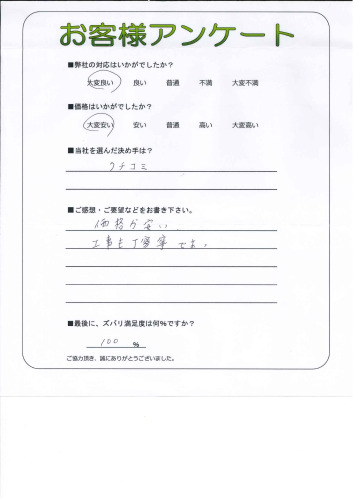 お客様アンケート
■弊社の対応はいかがでしたか？
大変良い 良い 普通 不満 大変不満
■価格はいかがでしたか？
大変安い 安い 普通 高い 大変高い
■当社を選んだ決め手は？
クチコミ
■ご感想・ご要望などをお書き下さい。
価格が安い
工事も丁寧
■最後に、ズバリ満足度は何％ですか？
100 ％
ご協力頂き、誠にありがとうございました。